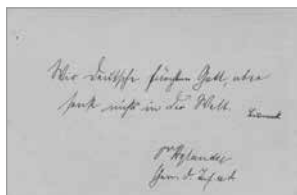 Wir Deutsche fürchten Gott, aber
sonst nichts in der Welt. Bismarck
v Xylander
Gen. d. Inf.